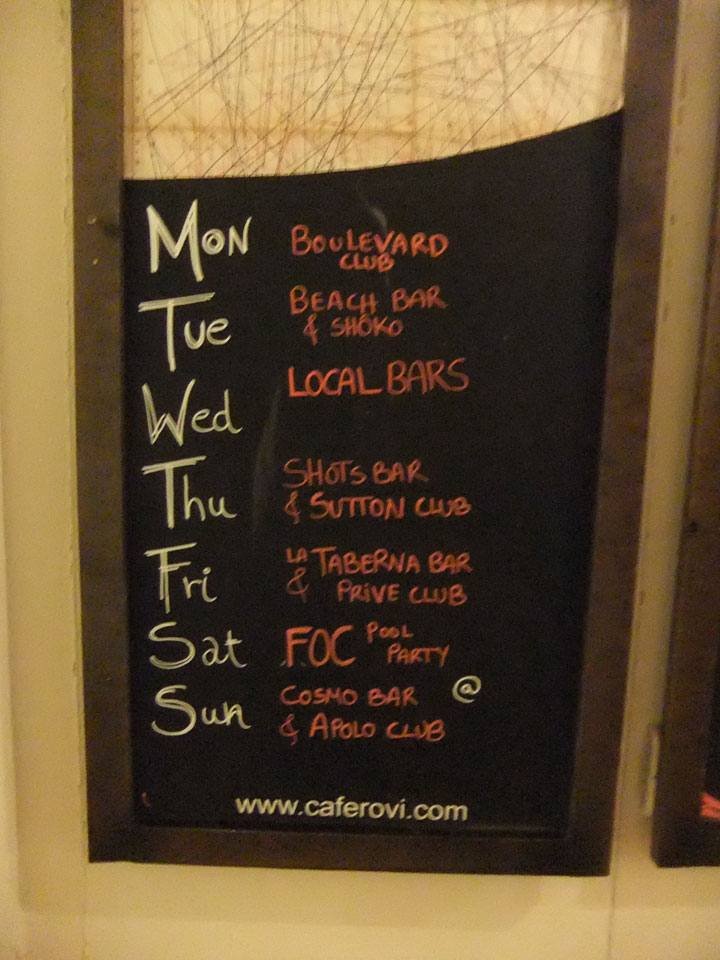 Mon BOULEVARD
CLUB
Tue BEACH BAR
& SHÔKO
Wed LOCAL BARS
Thu SHOTS BAR
& SUTTON CLUB
Fri LA TABERNA BAR
& PRIVE CLUB
Sat FOC POOL
PARTY
Sun COSMO BAR @
& APOLO CLUB
www.caferovi.com